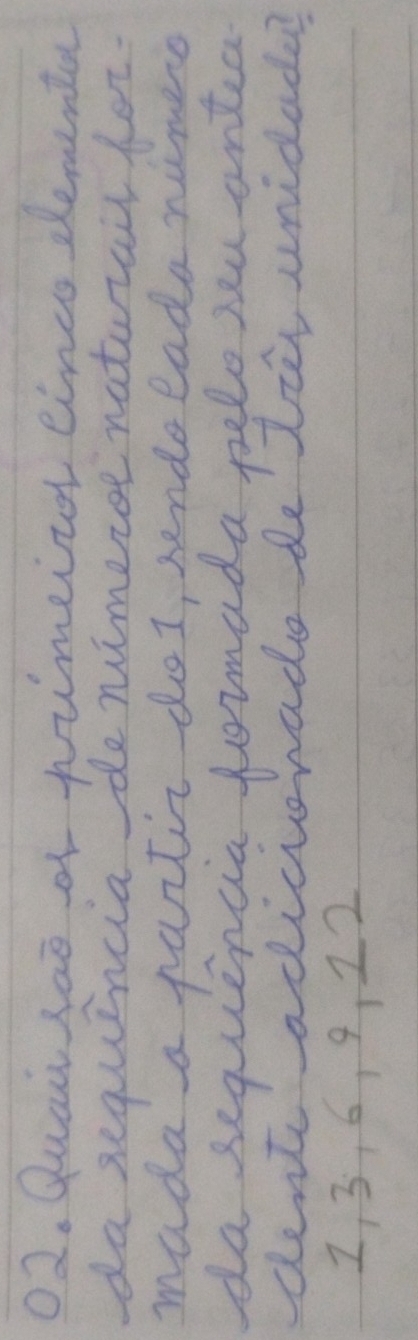 02. Quais são os primeiros cinco elementos
da sequência de números naturais for-
mada a partir do 1, sendo cada número
da sequência formada pelo seu antece-
dente adicionado de três unidades?
1, 3, 6, 9, 12